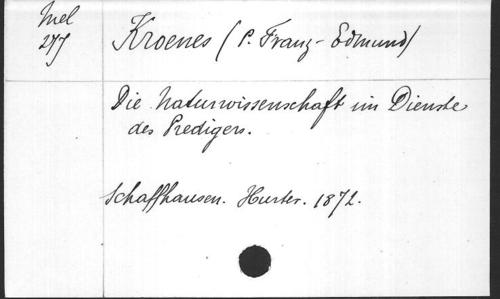 Mel
277
Kroenes (P. Franz-Edmund)
Die Naturwissenschaft im Dienste
des Predigers.
Schaffhausen. Hurter. 1872.